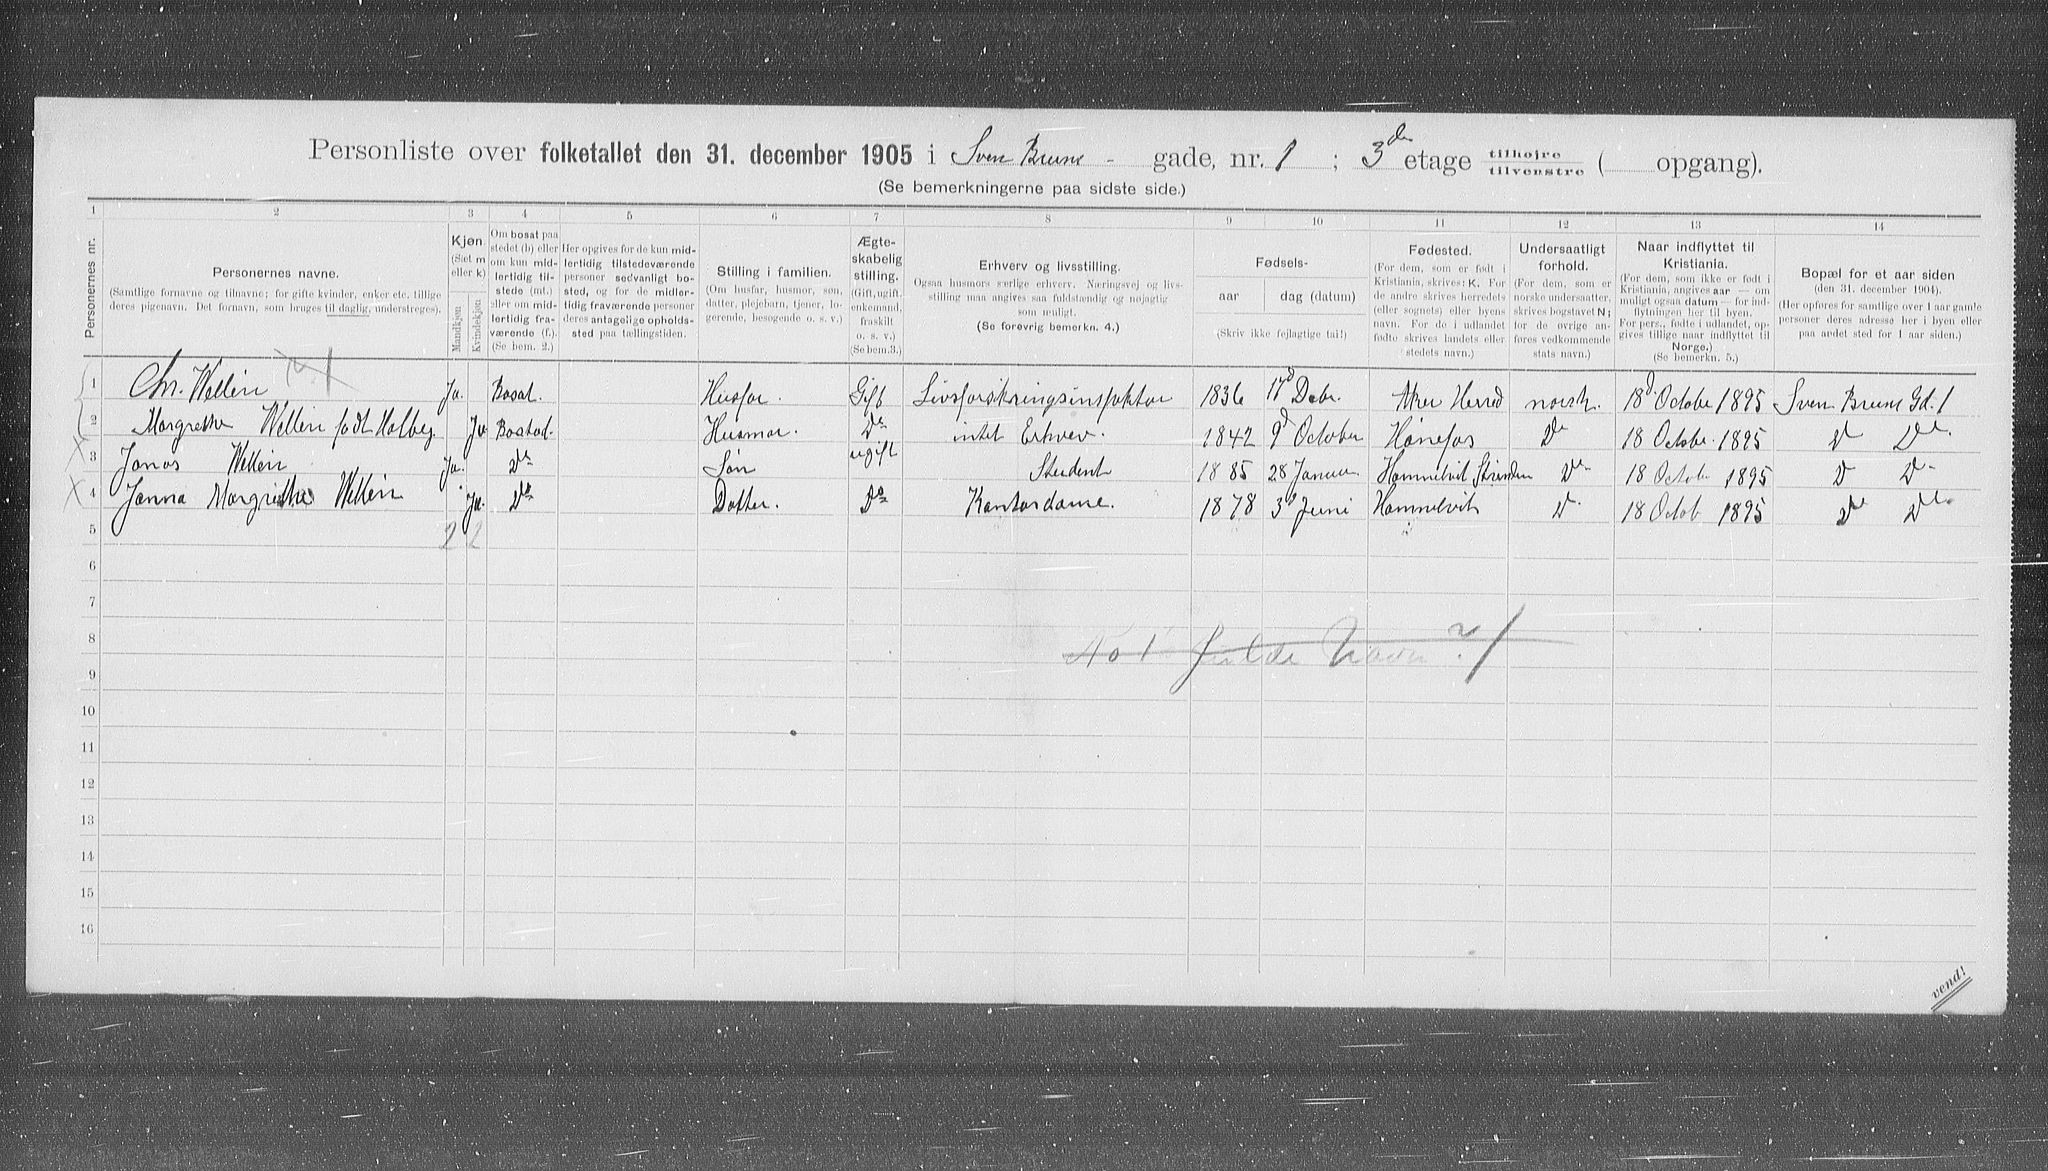 Personliste over folketallet den 31. december 1905 i Sven Bruns - gade, nr. 1 ; 3de etage tilhøjre tilvenstre ( opgang).
(Se bemerkningerne paa sidste side.)
1 2 3 4 5 6 7 8 9 10 11 12 13 14
Personernes nr.
Personernes navne.
(Samtlige fornavne og tilnavne; for gifte kvinder, enker etc. tillige
deres pigenavn. Det fornavn, som bruges til daglig, understreges).
Kjøn.
(Sæt m
eller k)
Mandkjøn
Kvindekjøn
Om bosat paa
stedet (b) eller
om kun mid-
lertidig til-
stede (mt.)
eller om mid-
lertidig fra-
værende (f.).
(Se bem. 2.)
Her opgives for de kun mid-
lertidig tilstedeværende
personer sedvanligt bo-
sted, og for de midler-
tidig fraværende personer
deres antagelige opholds-
sted paa tællingstiden.
Stilling i familien.
(Om husfar, husmor, søn,
datter, plejebarn, tjener, lo-
gerende, besøgende o. s. v.)
Ægte-
skabelig
stilling.
(Gift, ugift,
enkemand,
fraskilt
o. s. v.)
(Se bem.3.)
Erhverv og livsstilling.
Ogsaa husmors særlige erhverv. Næringsvej og livs-
stilling maa angives saa fuldstændig og nøjagtig
som muligt.
(Se forøvrig bemerkn. 4.)
Fødsels-
aar dag (datum)
(Skriv ikke fejlagtige tal!)
Fødested.
(For dem, som er født i
Kristiania, skrives: K. For
de andre skrives herredets
(eller sognets) eller byens
navn. For de i udlandet
fødte skrives landets eller
stedets navn.)
Undersaatligt
forhold.
(For dem, som er
norske undersaatter,
skrives bogstavet N;
for de øvrige an-
føres vedkommende
stats navn.)
Naar indflyttet til
Kristiania.
(For dem, som ikke er født i
Kristiania, angives aar — om
muligt ogsaa datum — for ind-
flytningen her til byen.
For pers., fødte i udlandet, op-
gives tillige naar indflyttet til
Norge.)
(Se bemerkn. 5.)
Bopæl for et aar siden
(den 31. december 1904).
(Her opføres for samtlige over 1 aar gamle
personer deres adresse her i byen eller
paa ardet sted for 1 aar siden.)
1 Chr. Wellén Ja. Bosat. Husfar. Gift Livsforsikringsinspektør 1836 17d Debr. Aker Herred norsk. 18d October 1895 Sven Bruns Gd. 1
2 Margrethe Wellén født Holbeg. Ja Bostad. Husmor. Do intet Erhvev. 1842 9d October Hønefos Do 18 Octobr. 1895 Do Do
3 Jonas Wellén Ja. Do Søn ugift Student 1885 28 Januar Hommelvik Strinden Do 18 Octobr 1895 Do Do
4 Janna Margrethe Wellén Ja. Do Datter. Do Kontordame. 1878 3d Juni Hommelvik Do 18 Octob 1895 Do Do
5 2 2
6
7
8 No 1 fulde Navn ?
9
10
11
12
13
14
15
16
vend!